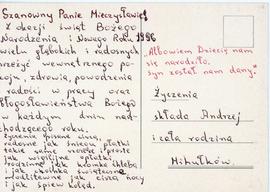 Szanowny Panie Mieczysławie!
Z okazji świąt Bożego
Narodzenia i Nowego Roku 1996
wielu głębokich i radosnych
przeżyć wewnętrznego po-
koju, zdrowia, powodzenia
i radości w pracy oraz
błogosławieństwa Bożego
w każdym dniu nad-
chodzącego roku.
Życzenia ciche,
radosne jak śniegu płatki
takie zwykłe i proste
jak wigilijne opłatki
rodzinne jak kolęda
i jak choinka świąteczna
modlitewne jak cisza nocy
i jak śpiew kolęd.
"Albowiem Dziecię nam
się narodziło,
syn został nam dany"
Życzenia
składa Andrzej
i cała rodzina
Mihułków.